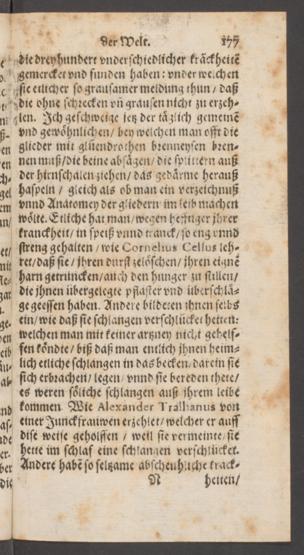 der Welt. 177
die dreyhundert vnderschiedlicher kräckheitē
gemercket vnd funden haben: vnder welchen
sie etlicher so grausamer meldung thun / daß
die ohne schrecken vñ grausen nicht zu erzeh-
len. Ich geschweige jetz der täglich gemeinē
vnd gewöhnlichen / bey welchen man offt die
glieder mit glüendrothen brenneysen bren-
nen muß / die beine absägen / die splittern auß
der hirnschalen ziehen / das gedärme herauß
haspeln / gleich als ob man ein verzeichnuß
vnnd Anatomey der gliedern im leib machen
wölte. Etliche hat man / wegen hefftiger jhrer
kranckheit / in speiß vnnd tranck / so eng vnnd
streng gehalten / wie Cornelius Celsus leh-
ret / daß sie / jhren durst zelöschen / jhren eignē
harn getrincken / auch den hunger zu stillen /
die jhnen übergelegte pflaster vnd überschlä-
ge geessen haben. Andere bildeten jhnen selbs
ein / wie daß sie schlangen verschlücket hetten:
welchen man mit keiner artzney nicht gehelf-
fen köndte / biß daß man entlich jhnen heim-
lich etliche schlangen in das becken / darein sie
sich erbrachen / legen / vnnd sie bereden thete /
es weren söliche schlangen auß jhrem leibe
kommen. Wie Alexander Tralhanus von
einer Junckfrauwen erzehlet / welcher er auff
dise weise geholffen / weil sie vermeinte / sie
hette im schlaf eine schlangen verschlücket.
Andere habē so seltzame abscheuhliche kranck-
N heiten /